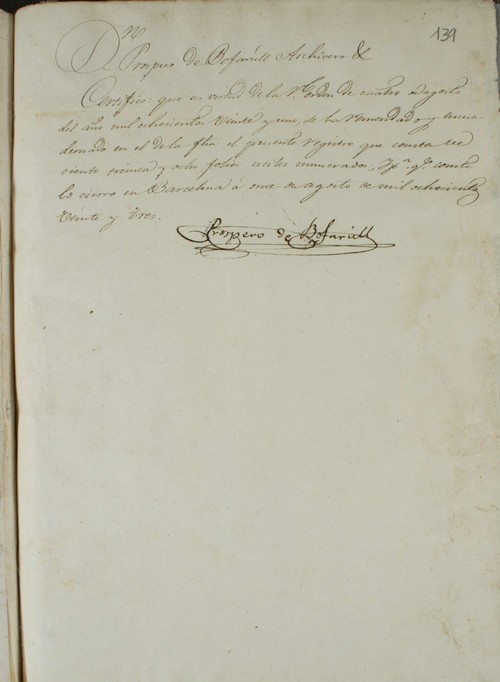 139
Dn. Prospero de Bofarull Archivero &
Certifico: que en virtud de la Rl. Orden de cuatro de agosto
del año mil ochocientos veinte y uno, se ha remendado y encua
dernado en el de la fha el presente registro que consta de
ciento treinta y ocho folios utiles enumerados, Y pa. qe. conste
lo cierro en Barcelona á once de agosto de mil ochocientos
veinte y tres.
Prospero de Bofarull